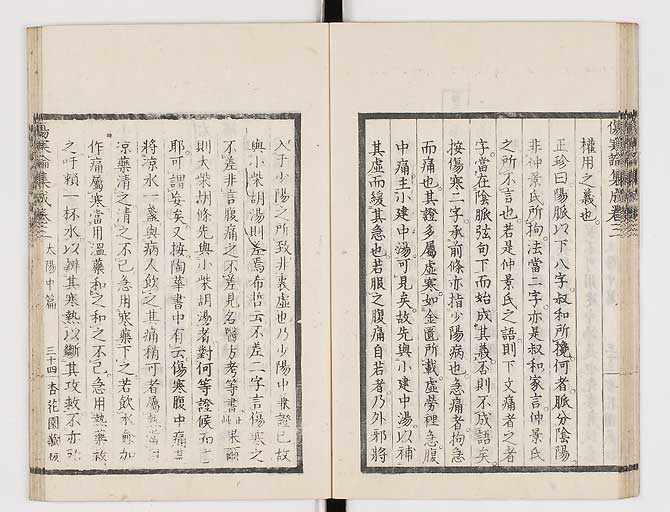 權用之義也
正珍曰陽脈以下八字叔和所攙何者脈分陰陽
非仲景氏所拘法當二字亦是叔和家言仲景氏
之所不言也若是仲景氏之語則下文痛者之者
字當在陰脈弦句下而始成其義否則不成語矣
按傷寒二字承前條亦指少陽病也急痛者拘急
而痛也其證多屬虛寒如金匱所載虛勞裡急腹
中痛主小建中湯可見矣故先與小建中湯以補
其虛而緩其急也若服之腹痛自若者乃外邪將
傷寒論集成卷三
入于少陽之所致非裏虛也乃少陽中兼證已故
與小柴胡湯則差焉希哲云不差二字言傷寒之
不差非言腹痛之不差見名醫方考等書 果爾
則大柴胡條先與小柴胡湯者對何等證候而
耶可謂矣又按陶華書中有云傷寒腹中痛甚
將涼水一盞與病人飲之其痛稍可者屬熱當用
涼藥清之清之不已急用寒藥下之若飲水愈加
作痛屬寒當用溫藥和之和之不已急用熱藥救
之吁賴一杯水以辨其寒熱以斷其攻救不亦
傷寒論集成卷三 太陽中篇 三十四 杏花園藏板